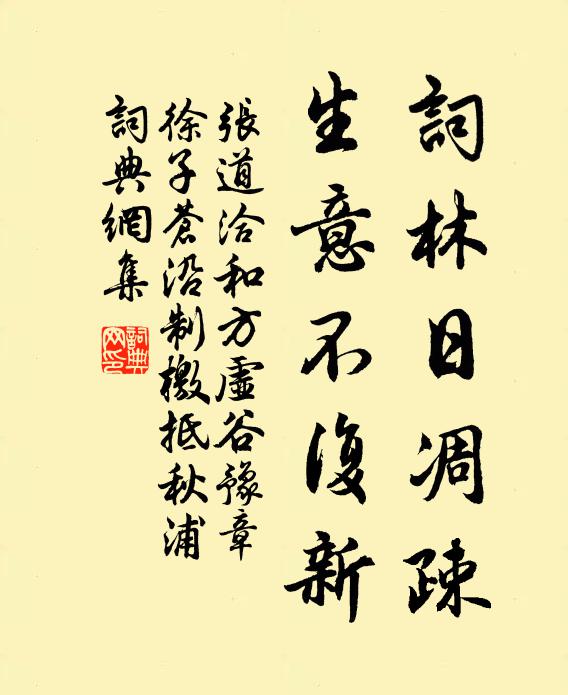 詞林日凋疎
生意不復新
張道洽和方虛谷豫章
徐子蒼沿制檄抵秋浦
詞典網集
詞典网印